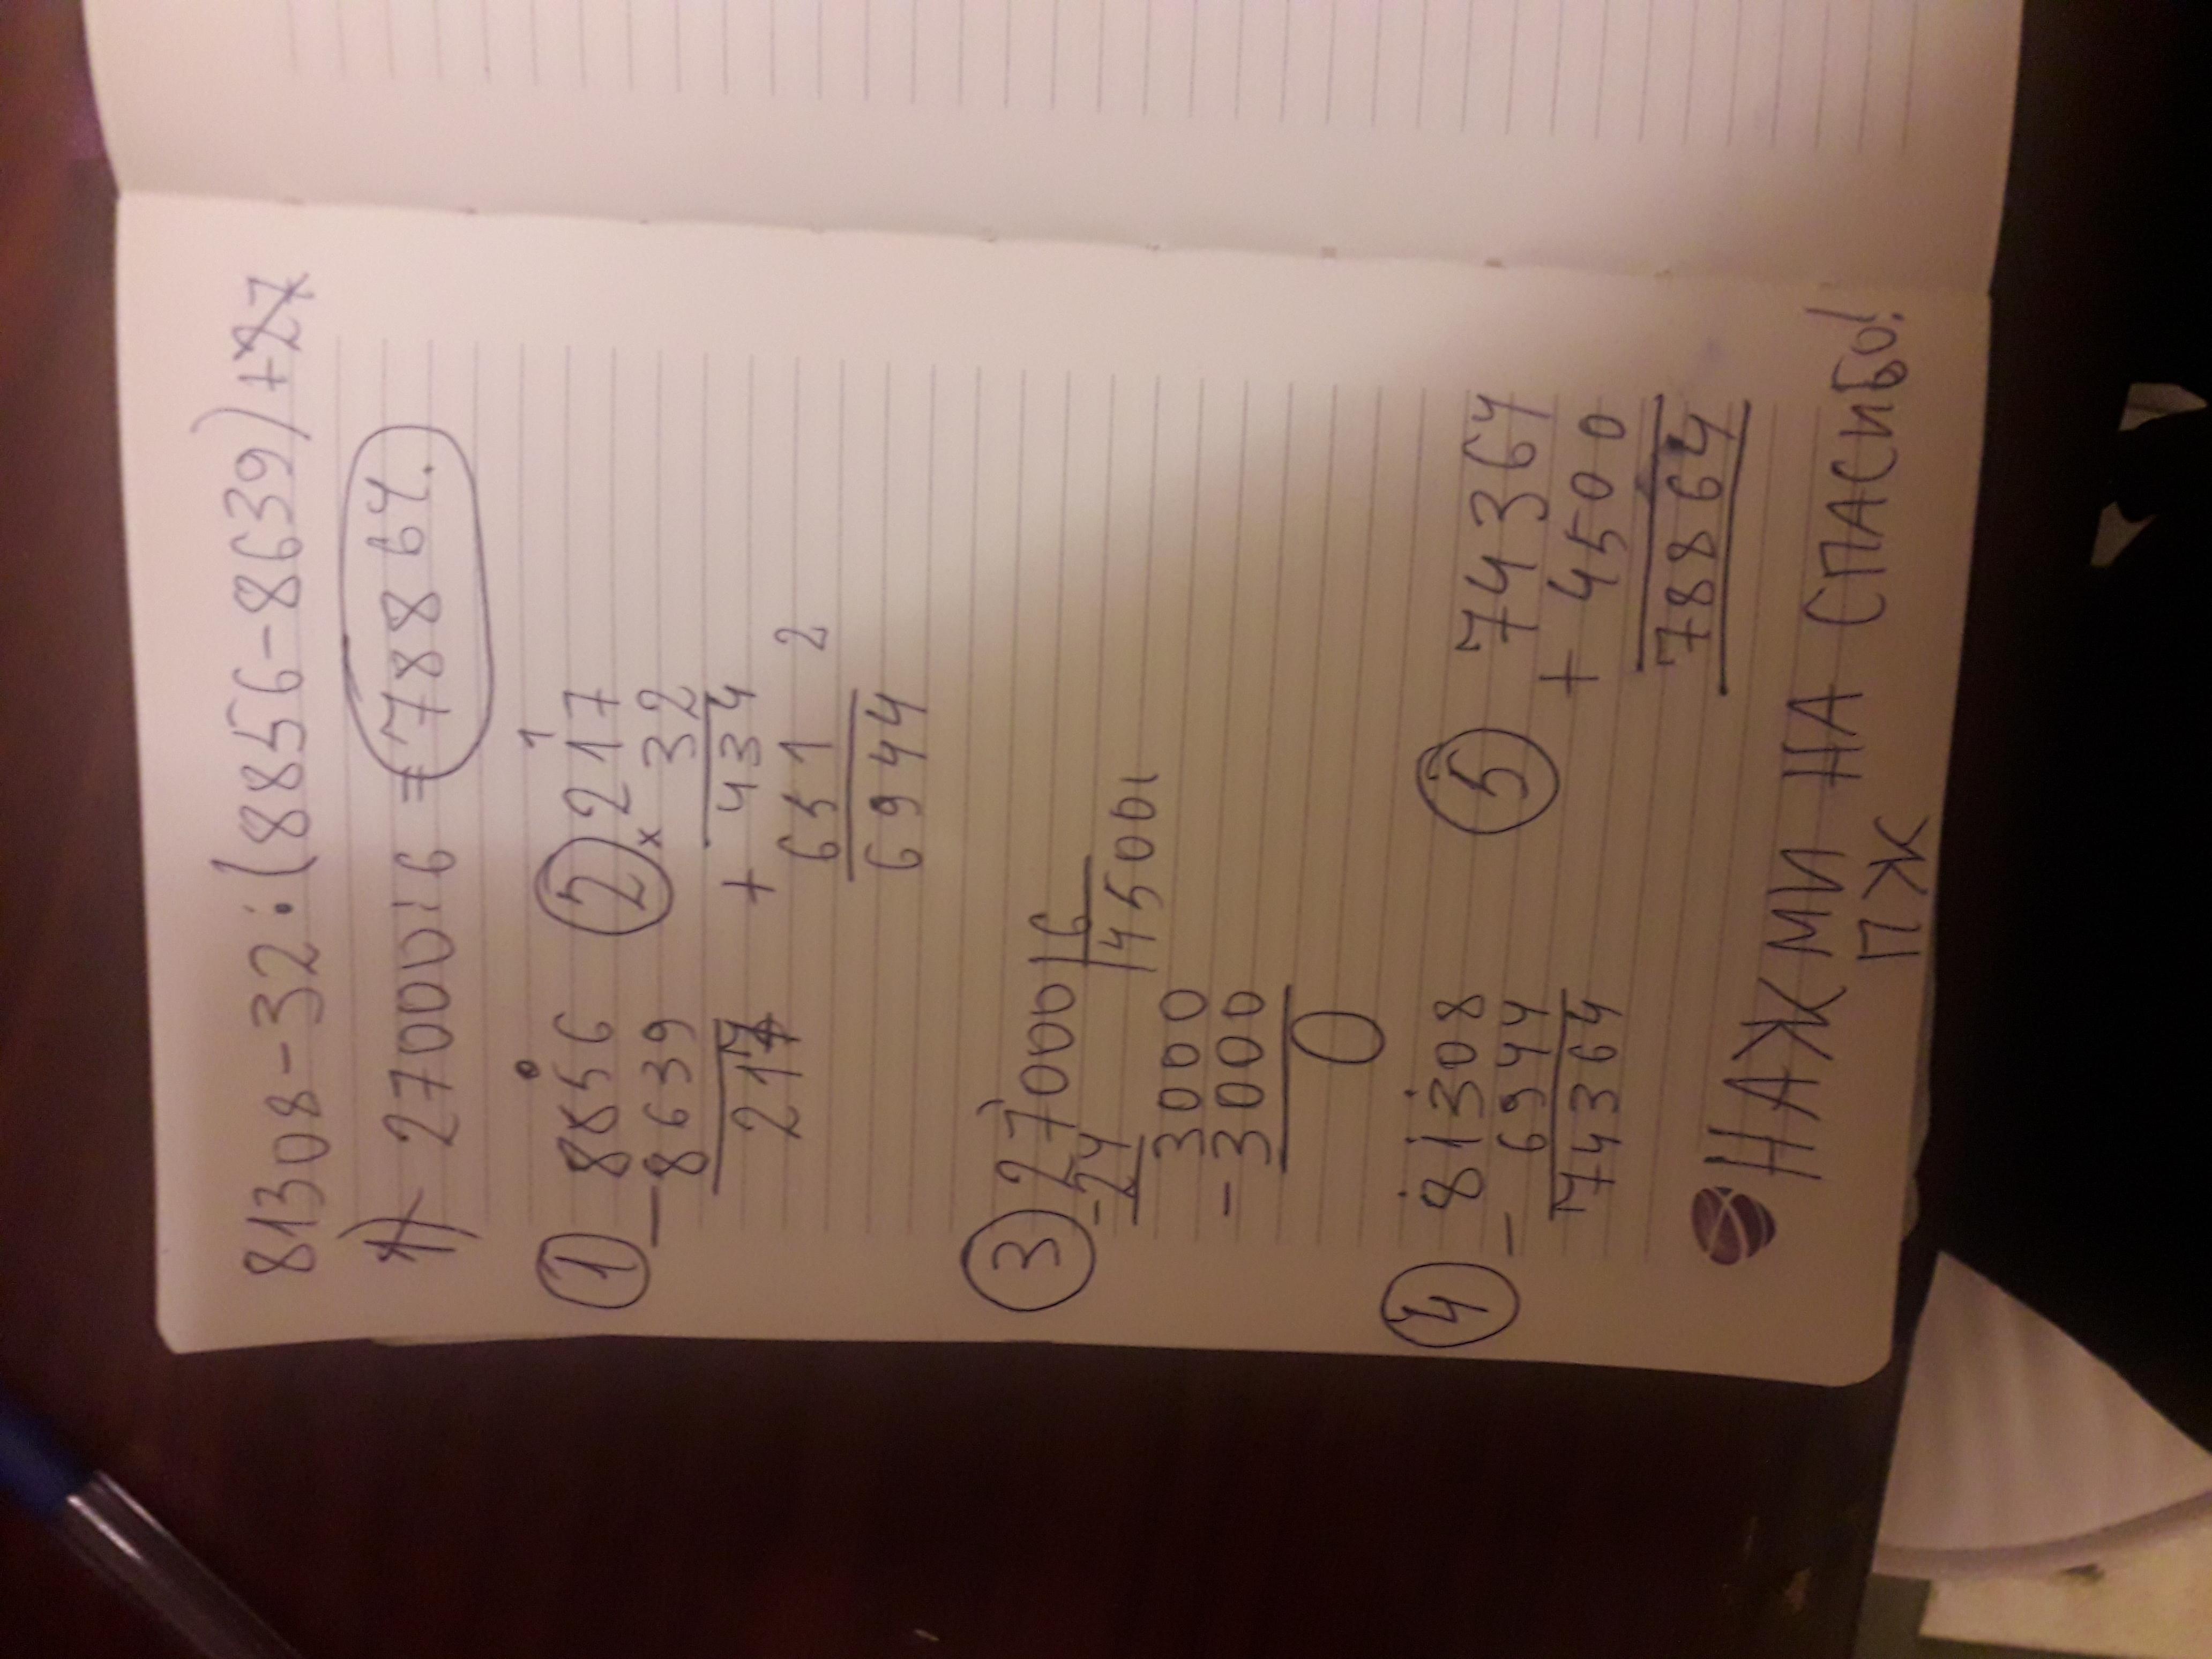 81308-32:(8856-8639)+27
1) 27000:6 = 78864.
① 8856
- 8639
217
② 217
1
× 32
434
+ 651
2
6944
③ 27000 6
-24 4500
3000
- 3000
0
④ 81308
- 6944
74364
⑤ 74364
+ 4500
78864
НАЖМИ НА СПАСИБО!
ПЖ